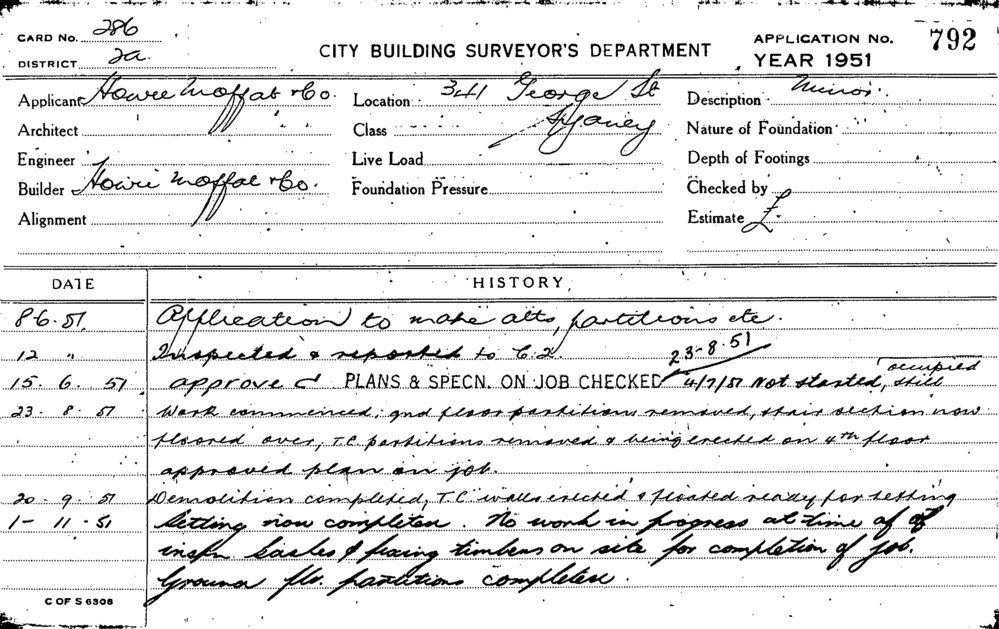 CARD No. 286
DISTRICT 2a.
CITY BUILDING SURVEYOR'S DEPARTMENT
APPLICATION No. 792
YEAR 1951
Applicant Howie Moffat & Co.
Location 341 George St
Sydney
Description Minor.
Architect
Class
Nature of Foundation
Engineer
Live Load
Depth of Footings
Builder Howie Moffat & Co.
Foundation Pressure
Checked by
Alignment
Estimate £
DATE HISTORY
8-6-51 Application to make alts, partitions etc.
12 " Inspected & reported to C.I. 23-8-51
15. 6. 51 approved PLANS & SPECN. ON JOB CHECKED 4/7/51 Not started, still occupied
23. 8. 51 Work commenced; gnd floor partitions removed, stair section now
floored over, T.C. partitions removed & being erected on 4th floor
approved plan on job.
20. 9. 51 Demolition completed, T.C. walls erected & floated ready for setting
1- 11. 51 Setting now completed. No work in progress at time of
inspn Sashes & fixing timbers on site for completion of job.
Ground flr. partitions completed.
C OF S 6306